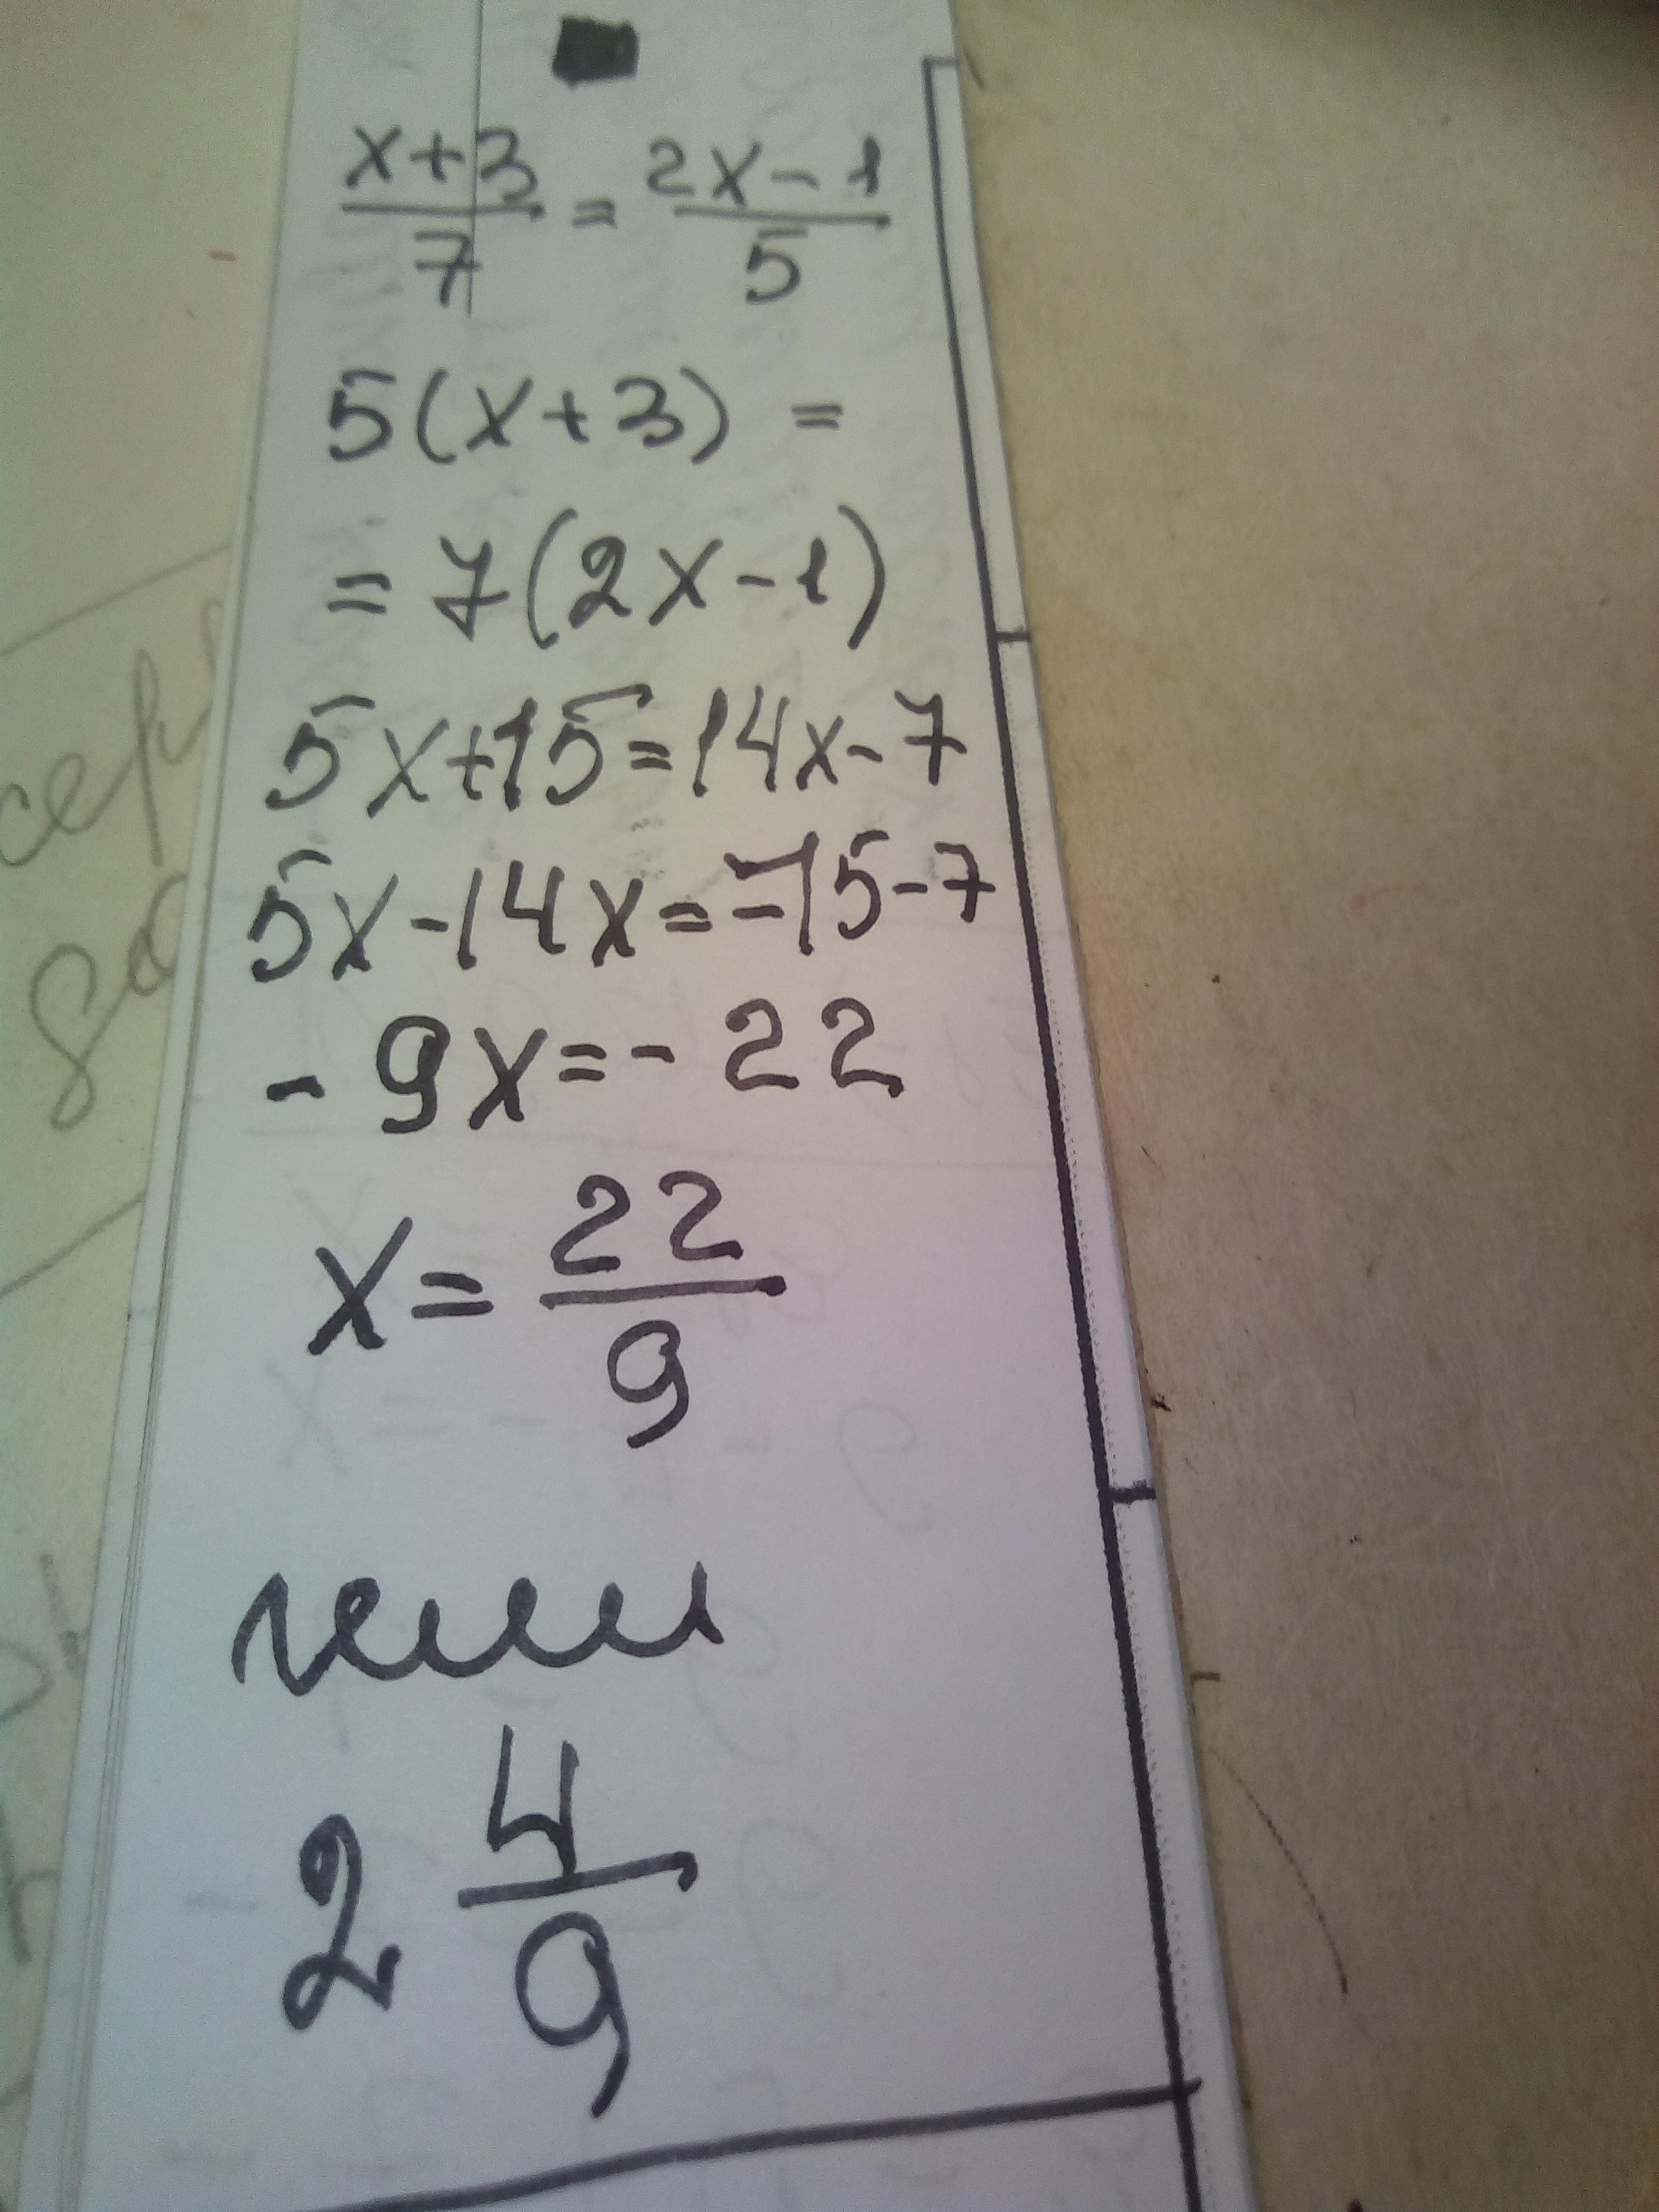 x+3/7 = 2x-1/5
5(x+3) =
= 7(2x-1)
5x+15=14x-7
5x-14x=-15-7
-9x=-22
x=22/9
или
2 4/9